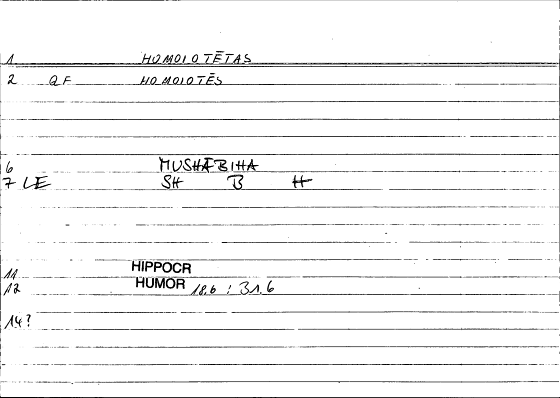 1 HOMOIOTĒTAS
2 QF HOMOIOTĒS
6 MUSHĀBIHA
7 LE SH B H
11 HIPPOCR
12 HUMOR 18,6 : 31,6
14?